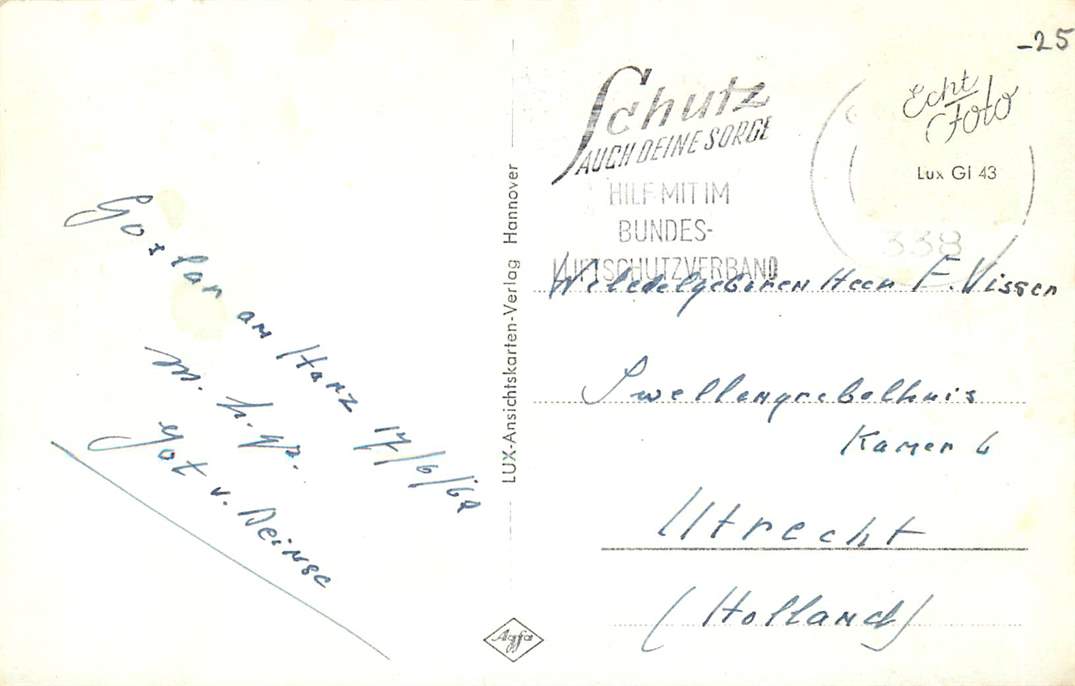 -25
Schutz
AUCH DEINE SORGE
HILF MIT IM
BUNDES-
LUFTSCHUTZVERBAND
Echt
Foto
Lux Gl 43
338
Goslar am Harz 17/6/62
m. h. gr.
Got v. Deinse
LUX-Ansichtskarten-Verlag Hannover
Weledelgeboren Heer F. Visser
Swellengrebelhuis
Kamer 6
Utrecht
(Holland)
Agfa